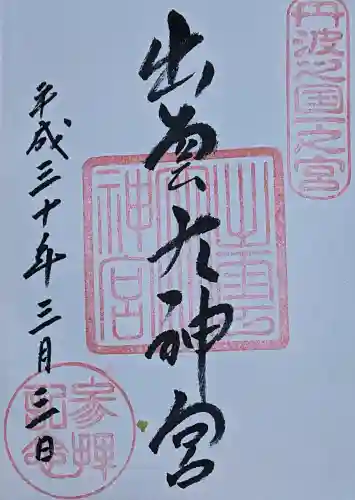 丹波國一之宮
出雲大神宮
出雲大神宮
平成三十年三月三日
参拝記念